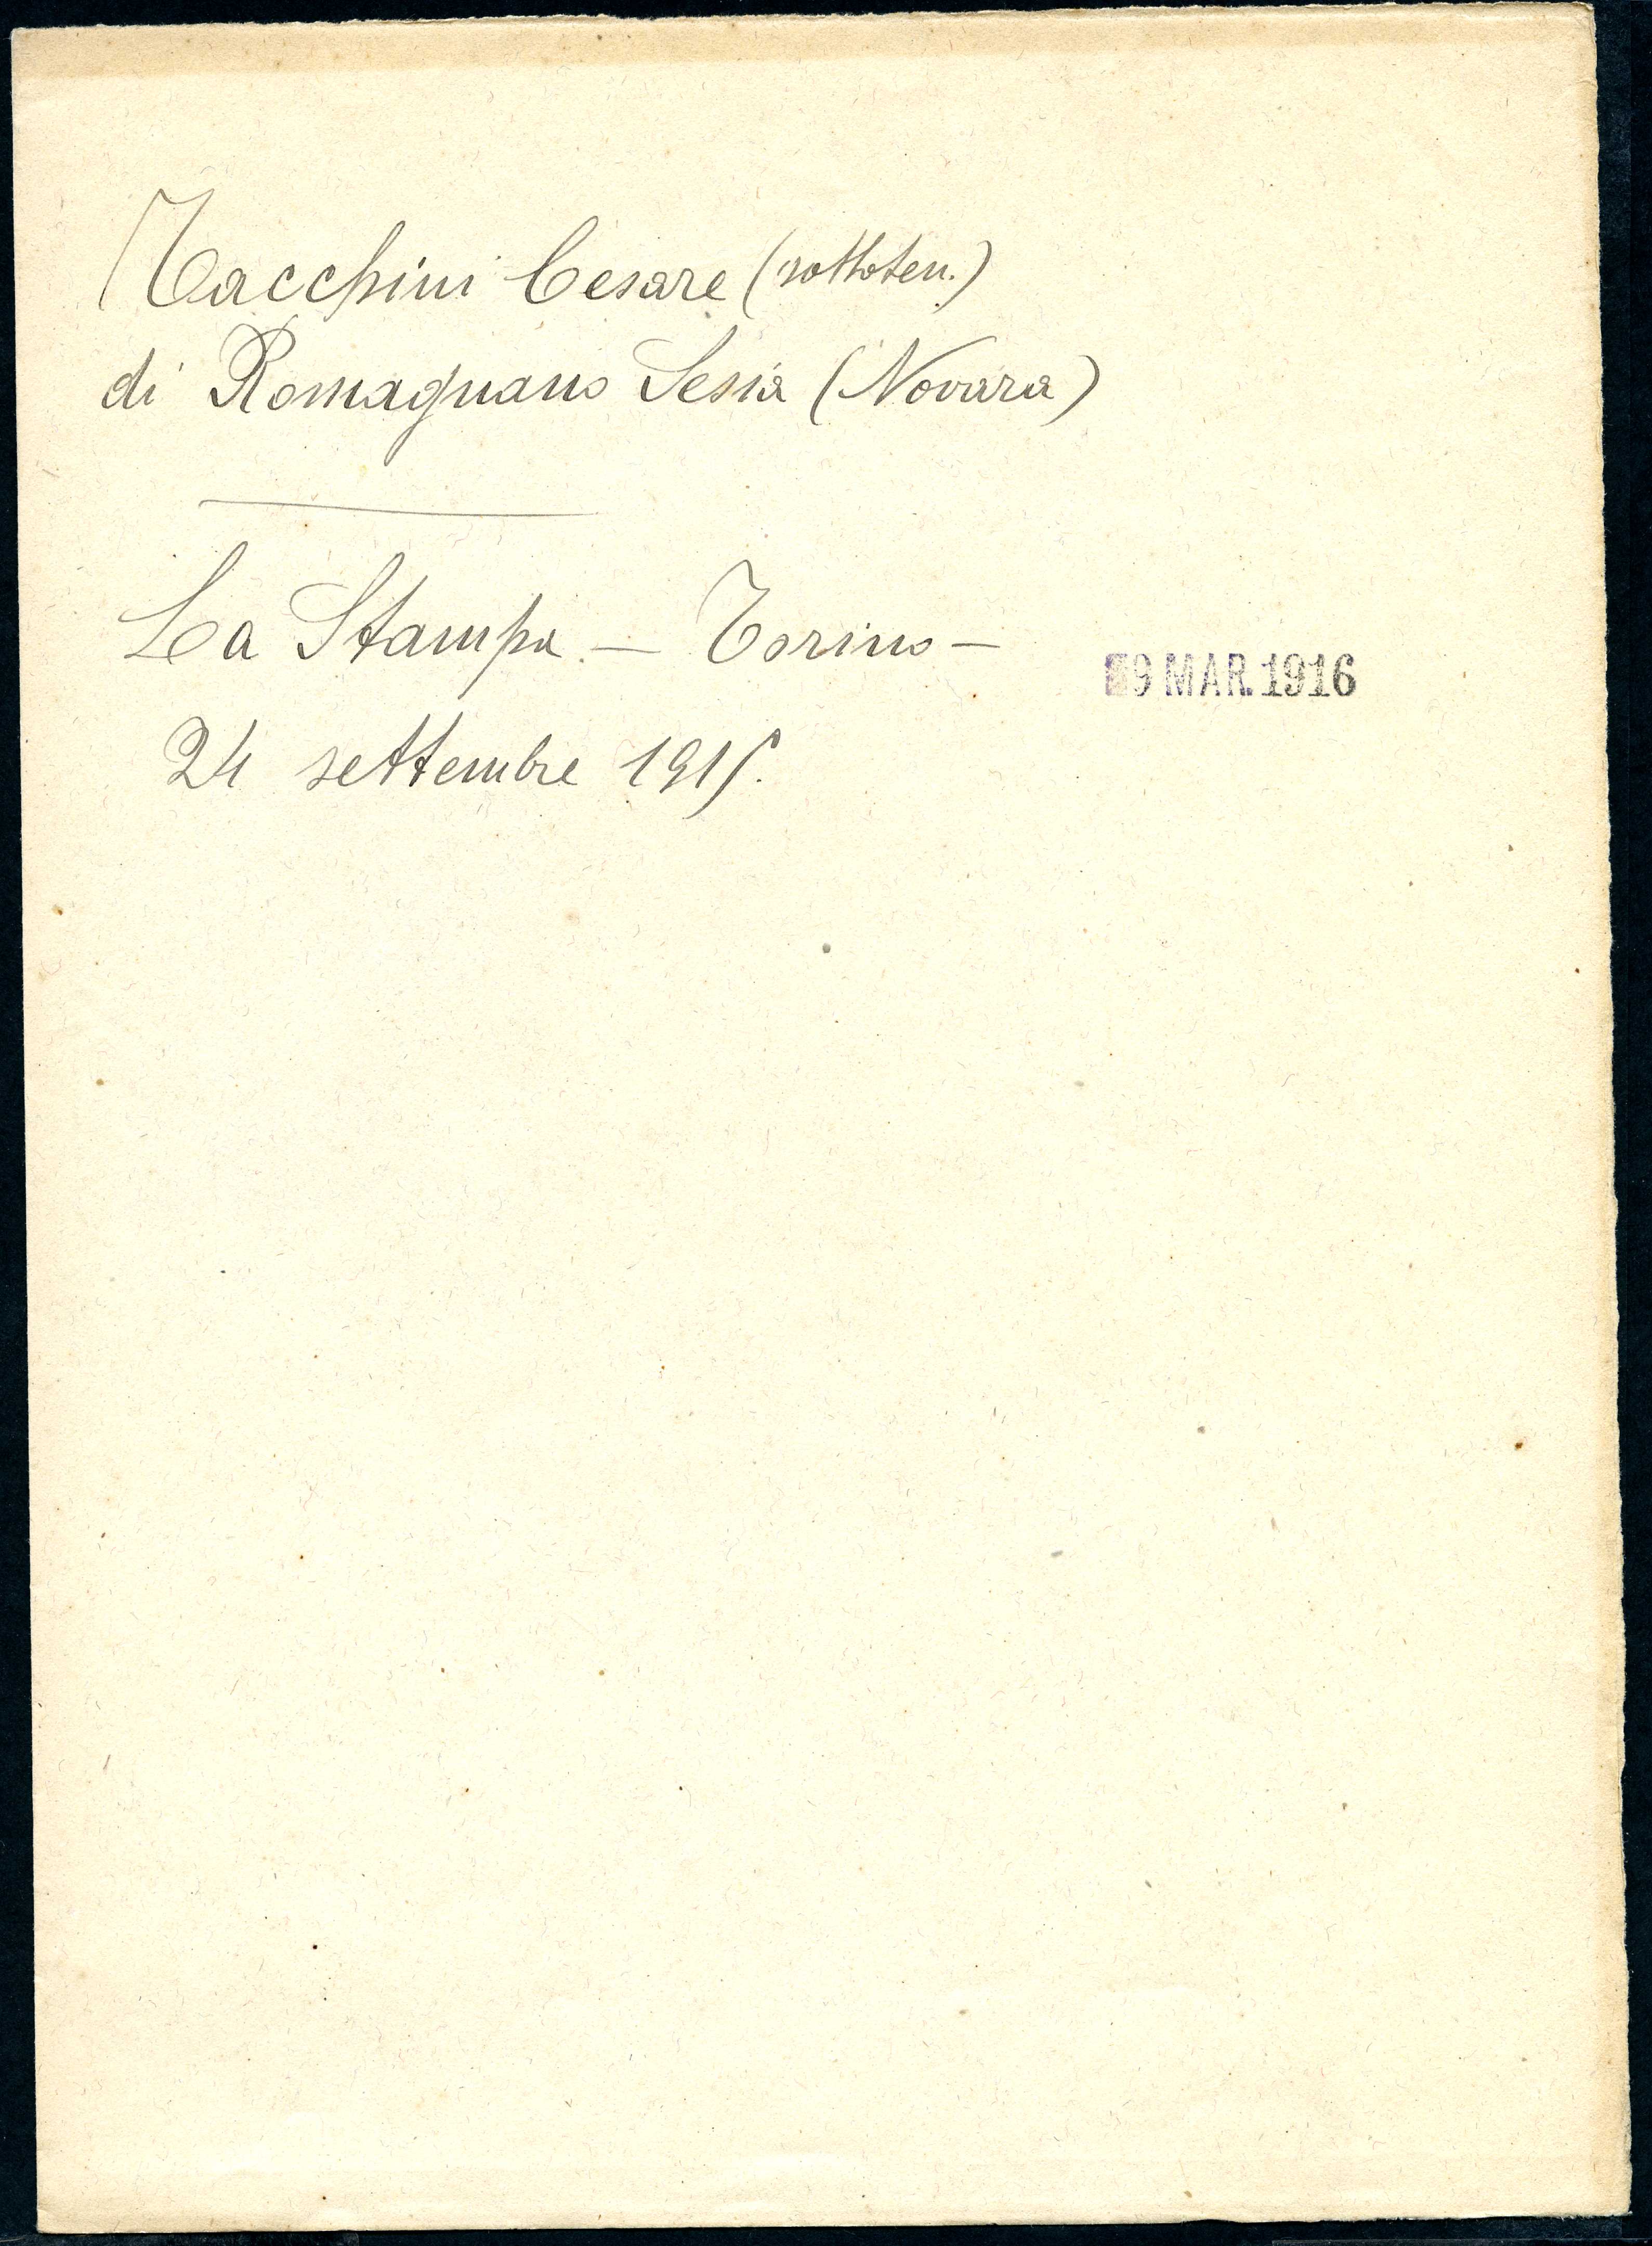 Tacchini Cesare (sottoten.)
di Romagnano Sesia (Novara)
La Stampa. — Torino —
9 MAR. 1916
24 settembre 1915.